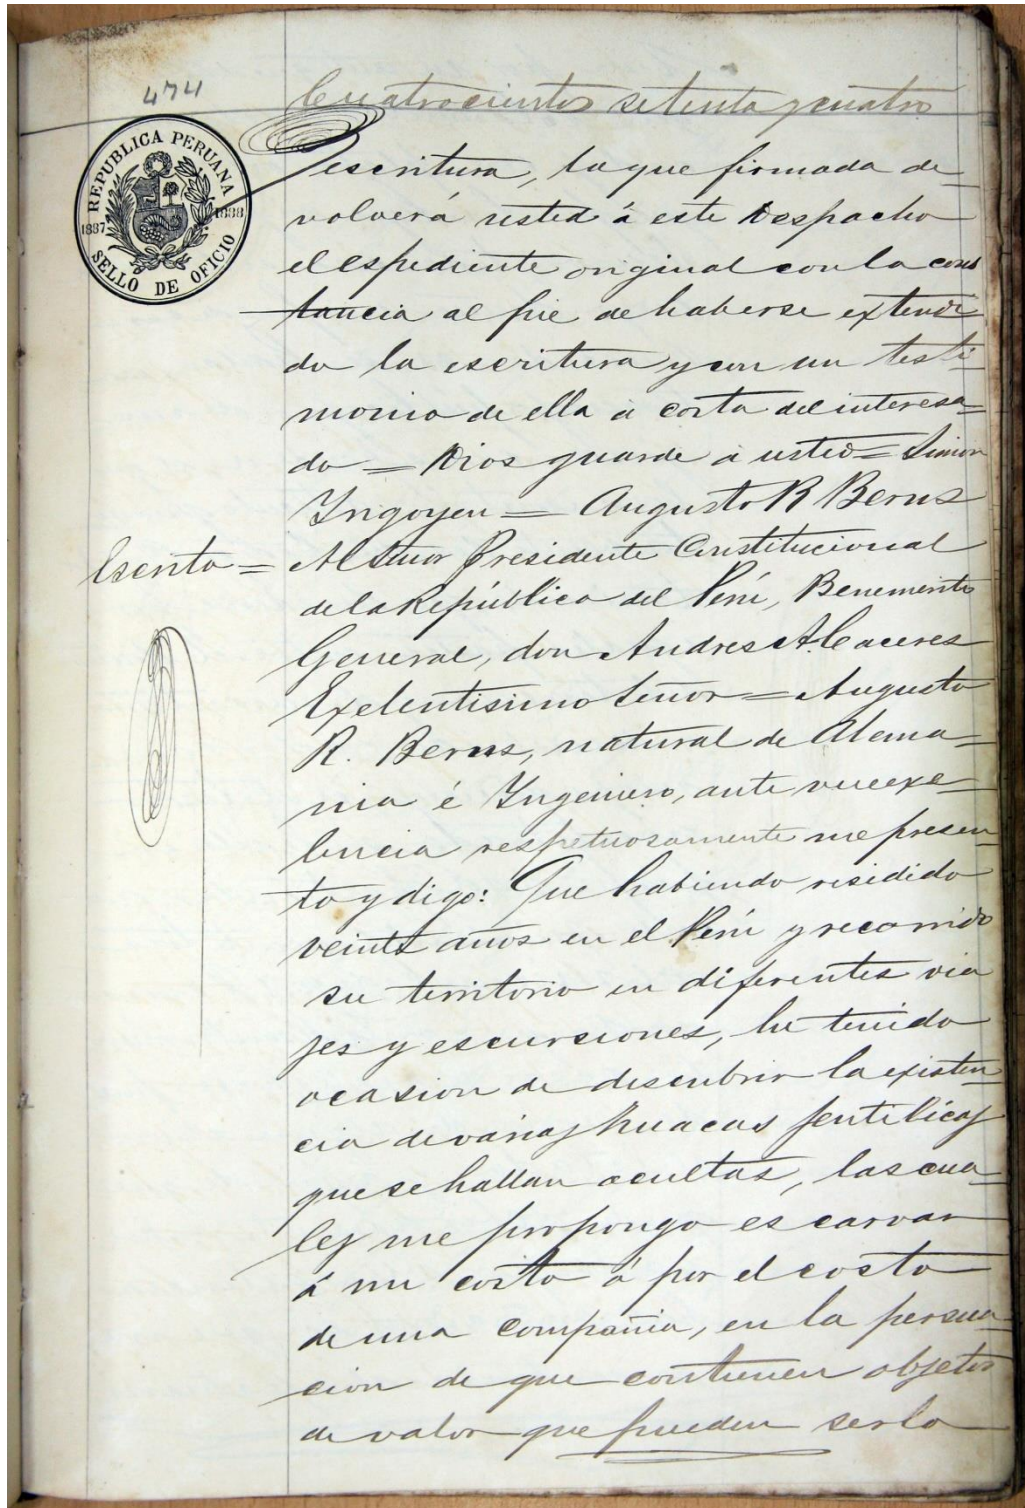 474
Cuatrocientos setenta y cuatro
REPUBLICA PERUANA
1887 1888
SELLO DE OFICIO
escritura, la que firmada de-
volverá usted á este Despacho
el espediente original con la cons
tancia al pie de haberse extendi
do la escritura y con un testi
monio de ella á costa del interesa-
do = Dios guarde á usted = Simon
Irigoyen = Augusto R Berns
Escrito = Al Señor Presidente Constitucional
de la República del Perú, Benemérito
General, don Andres A. Caceres
Exelentisimo Señor = Augusto
R. Berns, natural de Alema-
nia é Ingeniero, ante vuexe-
lencia respetuosamente me presen-
to y digo: Que habiendo residido
veinte años en el Perú y recorrido
su territorio en diferentes via
jes y escursiones, he tenido
ocasion de descubrir la existen-
cia de várias huacas jentilicas
que se hallan ocultas, las cua-
les me propongo escarvar
á mi costo ó por el costo
de una Compañia, en la persua-
cion de que contienen objetos
de valor que pueden serlo